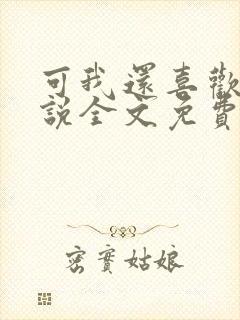 可我還喜歡
說全文免費
密實姑娘